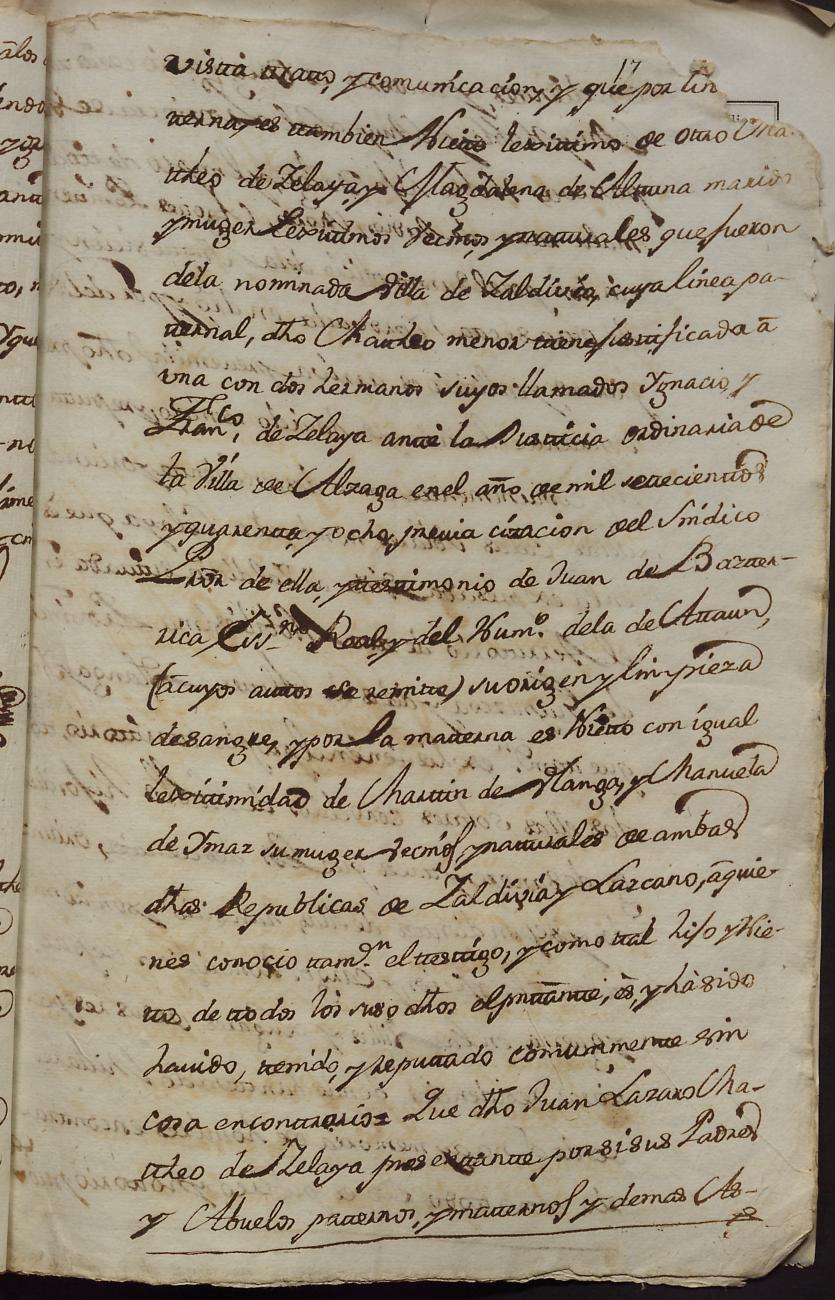 vista tratto, y comunicacion, y que por lin
17
terna, es tambien Nieto lexitimo de otro Ma-
theo de Zelaya, y Magdalena de Altuna marido
y muger Lexitimos vecinos, y naturales que fueron
dela nominada Villa de Zaldivia, cuya linea pa-
ternal, dho Matheo menor tiene justificada à
vna con dos hermanos suyos llamados Ygnacio, y
Fran.co de Zelaya ante la Justicia ordinaria de
la Villa de Alzaga en el año de mil setecientos
y quarenta, y ocho, previa citacion del Sindico
Pror de ella, y testimonio de Juan de Bazter-
rica Essno Real, y del Num.o dela de Attaun,
(a cuyos autos se remite) su origen y limpieza
de sangre, y por la materna es Nieto con igual
lexitimidad de Marttin de Ylango, y Manuela
de Ymaz su muger vecinos, y naturales de ambas
dhas Republicas de Zaldivia y Lazcano, à quie-
nes conocio tamvn el testigo, y como tal hijo y Nie-
to, de todos los suso dhos el presentante, es, y hà sido
havido, tenido, y reputtado comunmente sin
cosa en contrario = Que dho Juan Lazaro Ma-
theo de Zelaya presentante por si sus Padres
y Abuelos patternos, y matternos y demas As-